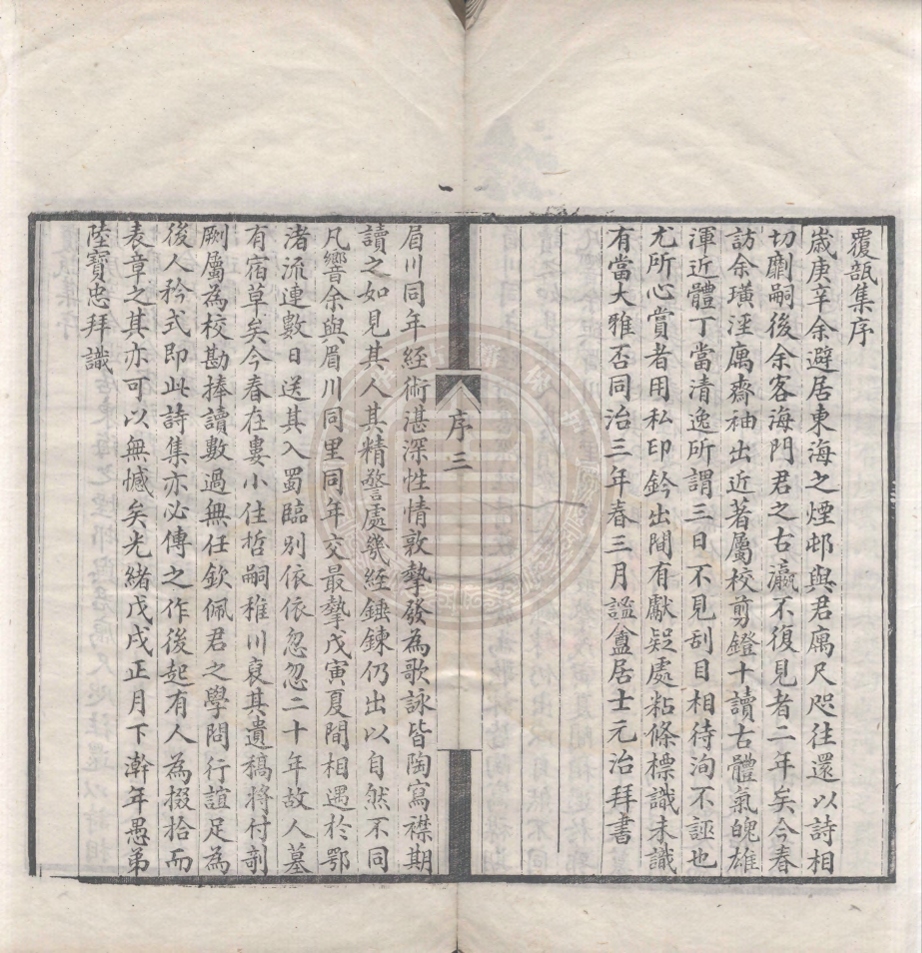 覆瓿集序
歲庚辛余避居東海之煙邨與君寓尺咫往還以詩相
切劘嗣後余客海門君之古瀛不復見者二年矣今春
訪余璜涇寓齋袖出近著屬校剪鐙十讀古體氣魄雄
渾近體丁當清逸所謂三日不見刮目相待洵不誣也
尤所心賞者用私印鈐出閒有獻疑處粘條標識未識
有當大雅否同治三年春三月謐盦居士元治拜書
序三
眉川同年經術湛深性情敦摯發為歌詠皆陶寫襟期
讀之如見其人其精警處幾經錘鍊仍出以自然不同
凡響余與眉川同里同年交最摯戊寅夏間相遇於鄂
渚流連數日送其入蜀臨別依依忽忽二十年故人墓
有宿草矣今春在婁小住哲嗣稚川裒其遺稿將付剞
劂屬為校勘捧讀數過無任欽佩君之學問行誼足為
後人矜式即此詩集亦必傳之作後起有人為掇拾而
表章之其亦可以無憾矣光緒戊戌正月下澣年愚弟
陸寶忠拜識